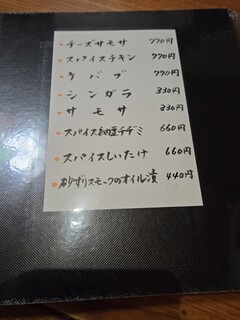 チーズサモサ 770円
スパイスチキン 770円
ケバブ 770円
シンガラ 330円
サモサ 330円
スパイス納豆チヂミ 660円
スパイスしいたけ 660円
砂ずりスモークのオイル漬 440円